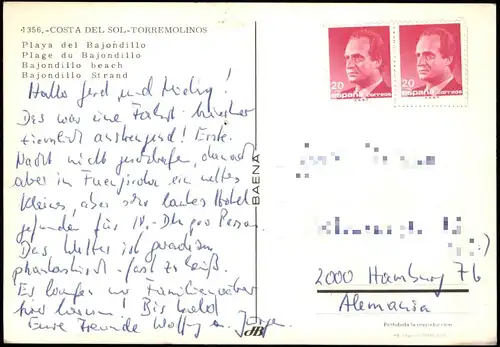 1356.-COSTA DEL SOL-TORREMOLINOS
Playa del Bajondillo
Plage du Bajondillo
Bajondillo beach
Bajondillo Strand
Hallo Gerd und
Das war eine Fahrt bisher
ziemlich anstrengend! Erste
Nacht nicht geschlafen, danach
aber in Fuengirola ein nettes
kleines, aber sehr lautes Hotel
gefunden für DM pro Person.
Das Wetter ist geradezu
phantastisch - fast zu heiß.
Es laufen nur Familienväter
hier herum! Bis bald
Eure Freunde Wolfg u. Jürgen
BAENA
dB
20
españa correos
20
españa correos
:)
2000 Hamburg 76
Alemania
Prohibida la reproducción